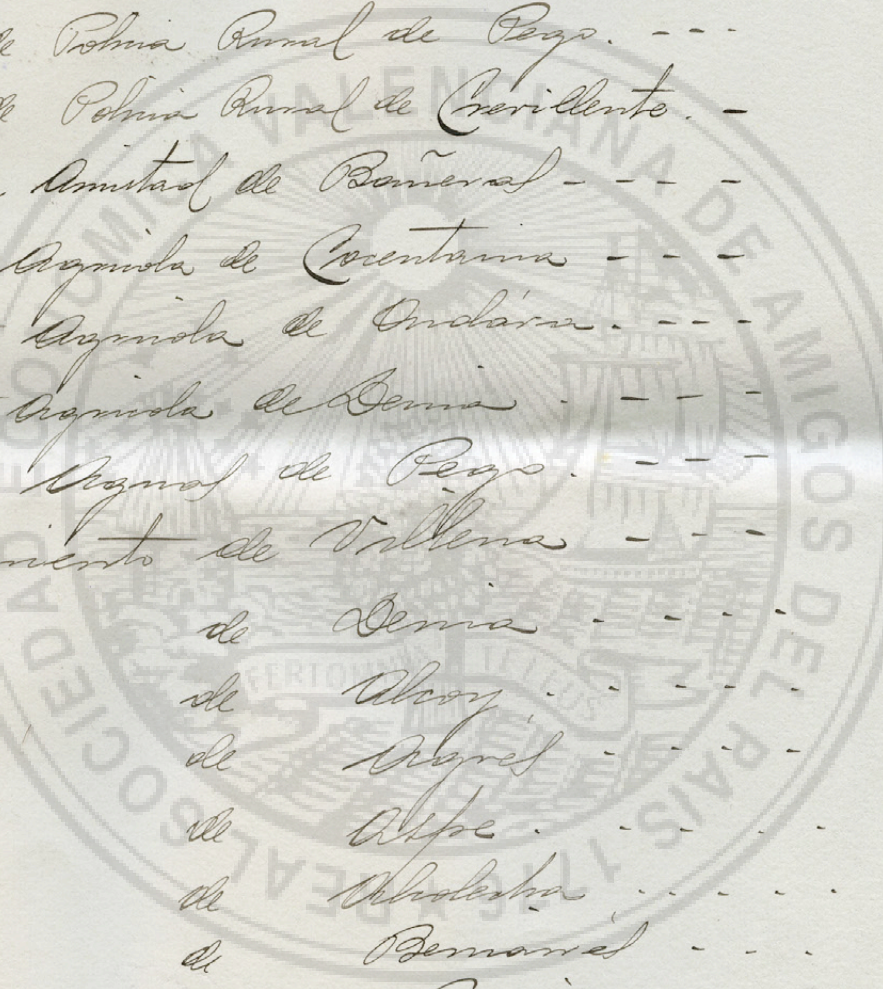 de Policia Rural de Pego. - - -
de Policia Rural de Crevillente. -
Amistad de Bañeras - - - -
Agricola de Cocentaina - - -
Agricola de Ondára. - - -
Agricola de Denia . - - -
de Pego . - - -
miento de Villena - - -
de Denia - - - -
de Alcoy . - - - -
de Agrés - - - -
de Aspe . - - - -
de - - - -
de - - -
REAL SOCIEDAD ECONOMICA VALENCIANA DE AMIGOS DEL PAIS 1776